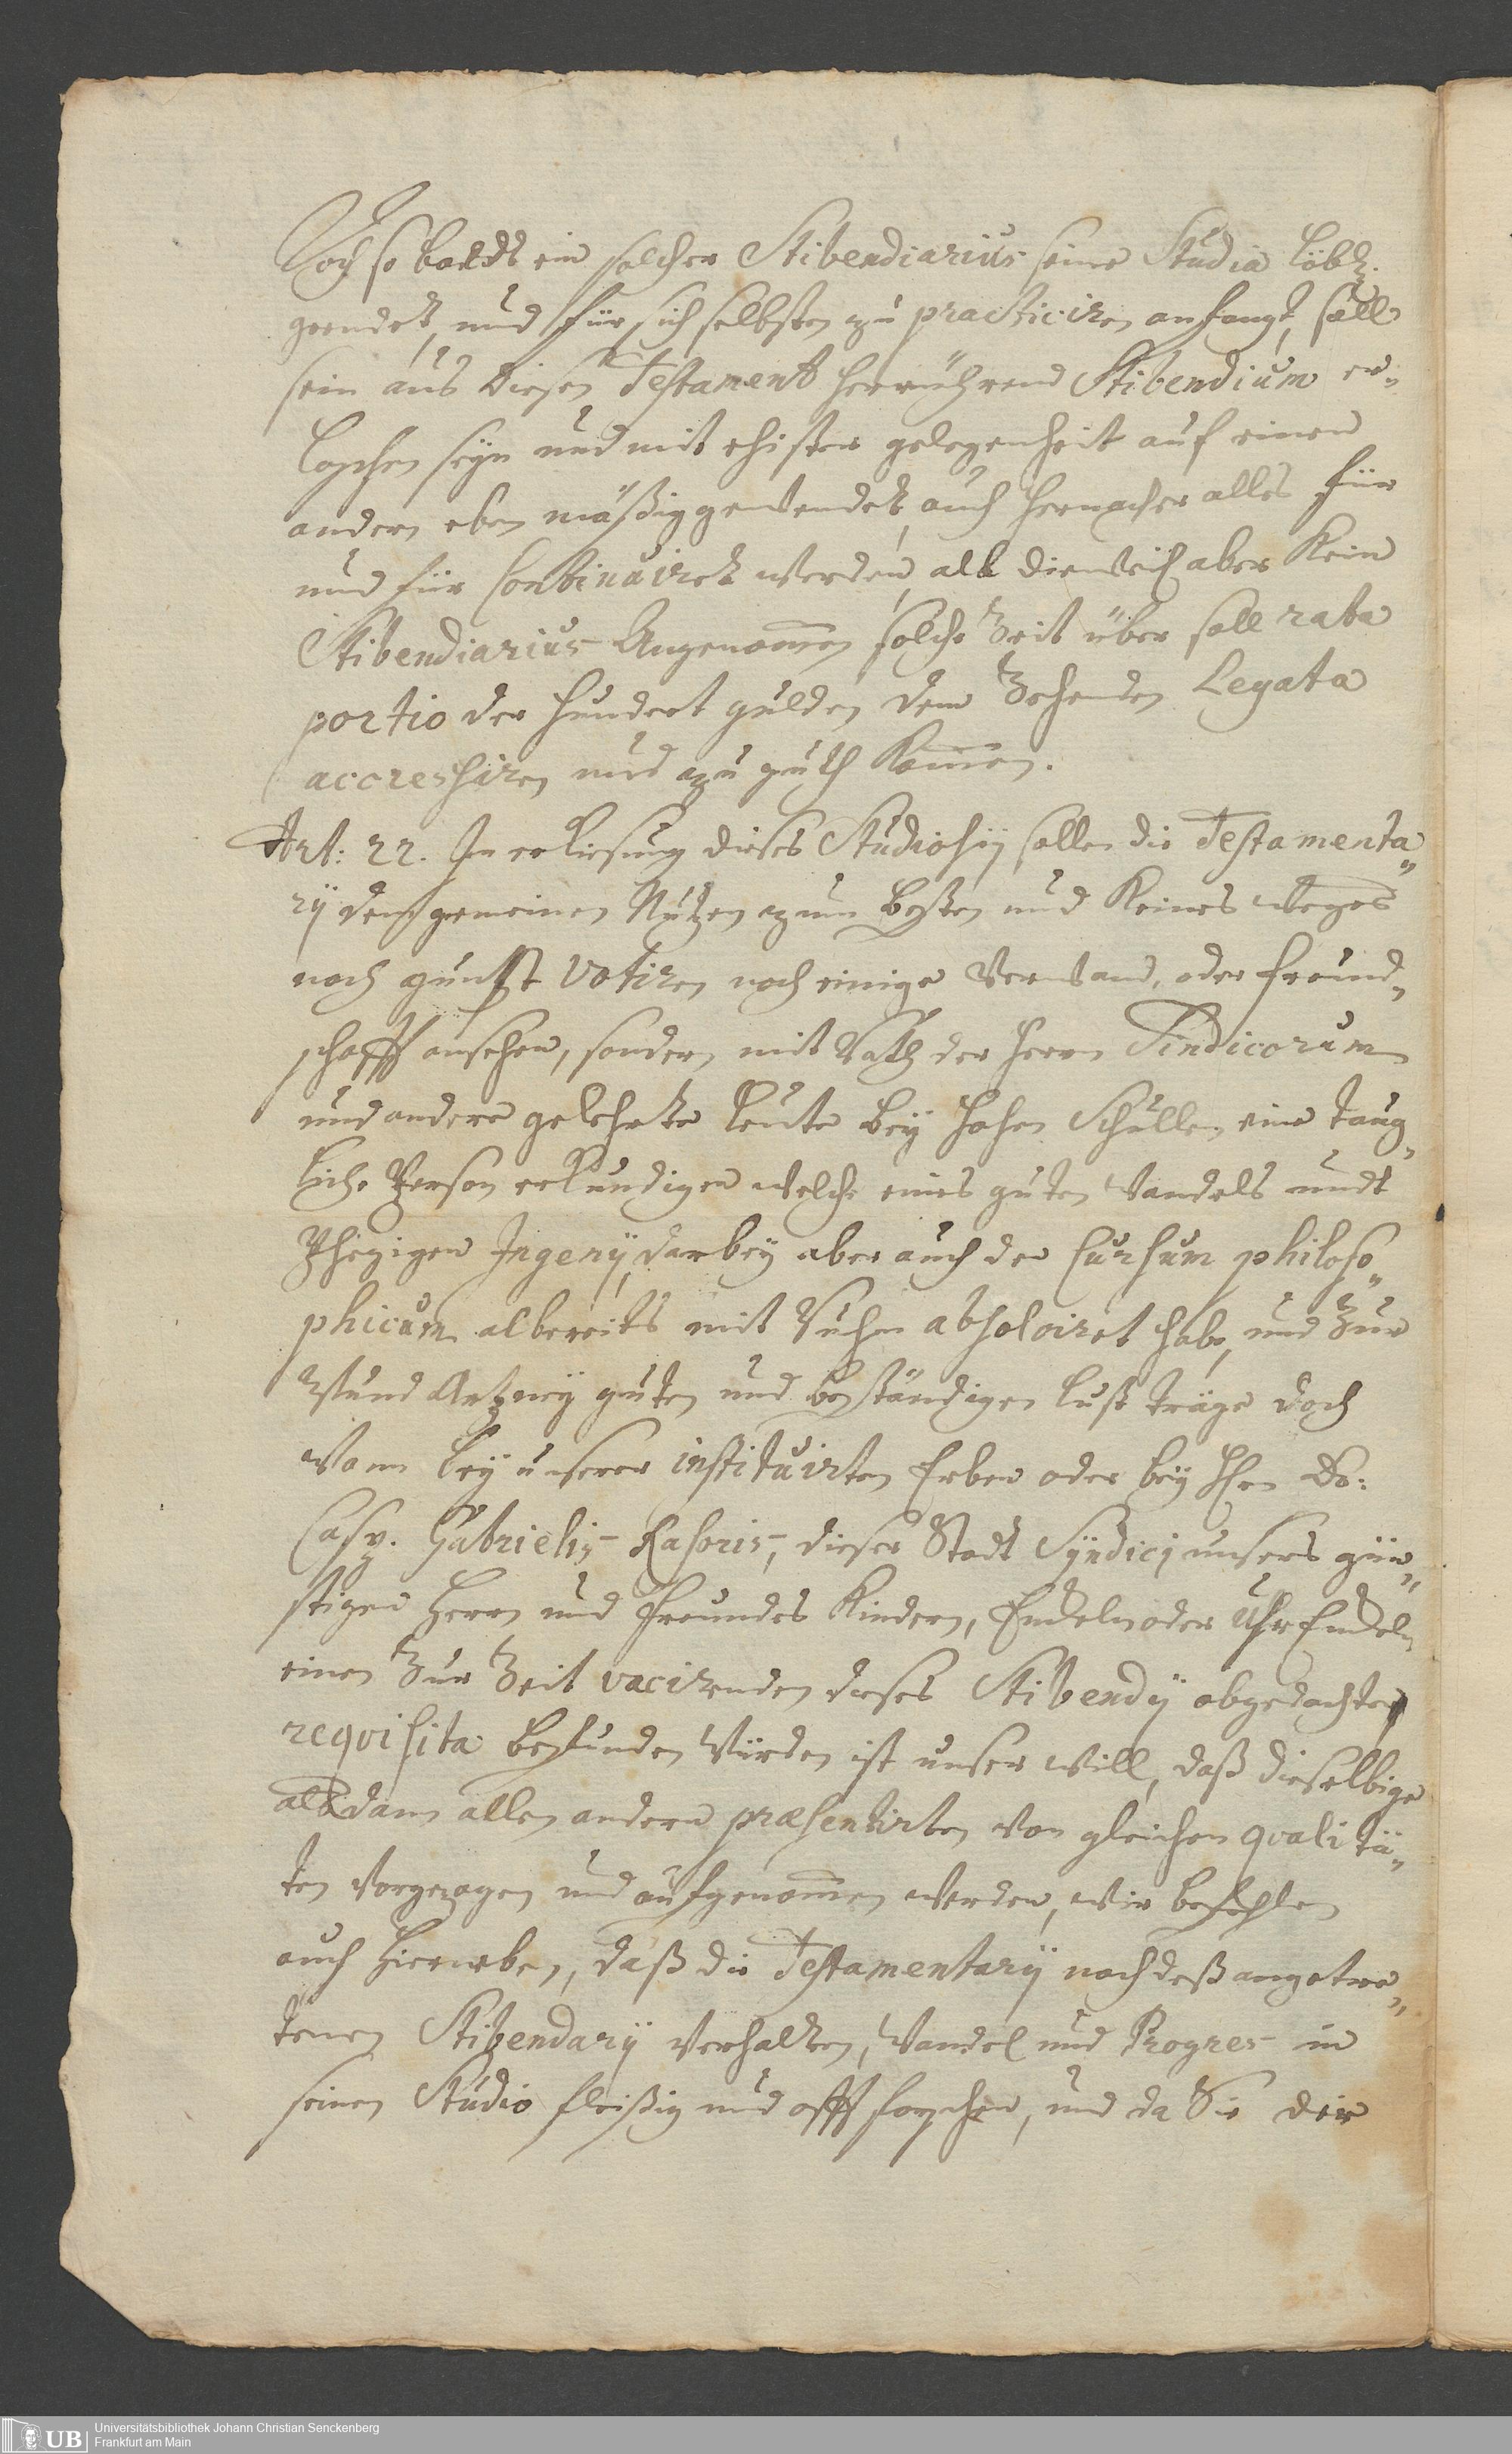 Doch so baldt ein solcher Stibendiarius seine Studia löbl.
geendet, und für sich selbsten zu practiciren anfangt, soll
sein aus diesen Testament herrührend Stibendium er„
loschen seyn und mit ehister gelegenheit auf einen
andern eben mäßig gewendet, auch hernacher alles für
und für Continuiret werden, all dieweil aber Kein
Stibendiarius Angenomen solche Zeit über soll rata
portio der hundert gulden dem Zehenden Legata
accreschiren und zu guth Komen.
Art: 22. In erkiesung dieses Studiosij sollen die Testamenta„
rij dem gemeinen Nutzen zum besten und Keines weges
nach gunst votiren noch einige Verwand. oder freund„
schafft ansehen, sondern mit Rath der herrn Sindicorum
und andere gelehrte leute bey hohen Schullen eine taug„
liche Person erkundigen welche eines guten Wandels undt
Ingenij, darbey aber auch der Cursum philoso„
phicum albereits mit Ruhm absolviret habe, und Zur
Wund Artzney guten und beständigen lust trage doch
Wann bey unserer instituirten Erben oder bey Hhen Do:
Casp. Gabrielis Rasoris, dieser Stadt Syndici unsers gün„
stigen Herrn und freundes Kindern, Enckeln oder Uhr Enckeln
einen Zur Zeit vacirenden dieses Stibendij obgedachter
requisita befunden Würden ist unser Will, daß dieselbige
alßdann allen andern præsentirten von gleichen qualitä„
ten vorgezogen und aufgenomen werden, wir befehlen
auch hierneben, daß die Testamentarij nach deß angetre„
tenen Stibendarij Verhalten, Wandel und Progres in
seinen Studio fleißig und offt forschen, und da Sie der
Universitätsbibliothek Johann Christian Senckenberg
Frankfurt am Main
UB